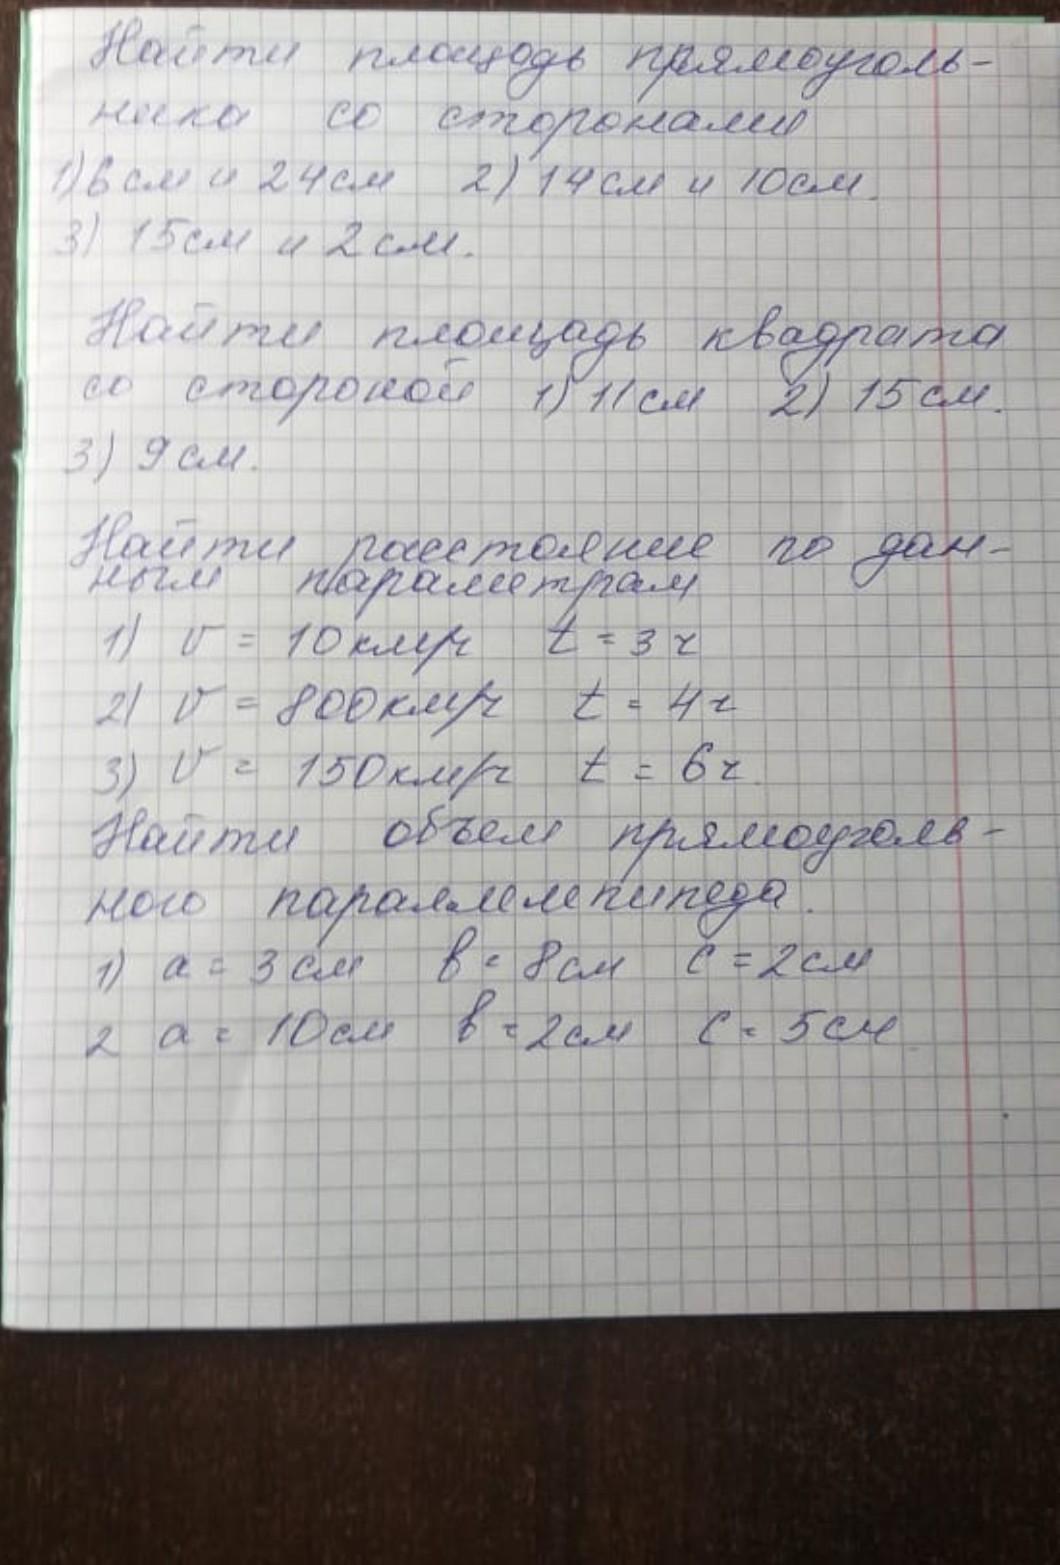 Найти площадь прямоуголь-
ника со сторонами
1) 6 см и 24 см 2) 14 см и 10 см.
3) 15 см и 2 см.
Найти площадь квадрата
со стороной 1) 11 см 2) 15 см.
3) 9 см.
Найти расстояние по дан-
ным параметрам
1) v = 10 км/ч t = 3 ч
2) v = 800 км/ч t = 4 ч
3) v = 150 км/ч t = 6 ч.
Найти объем прямоуголь-
ного параллелепипеда.
1) a = 3 см в = 8 см c = 2 см
2 a = 10 см в = 2 см c = 5 см